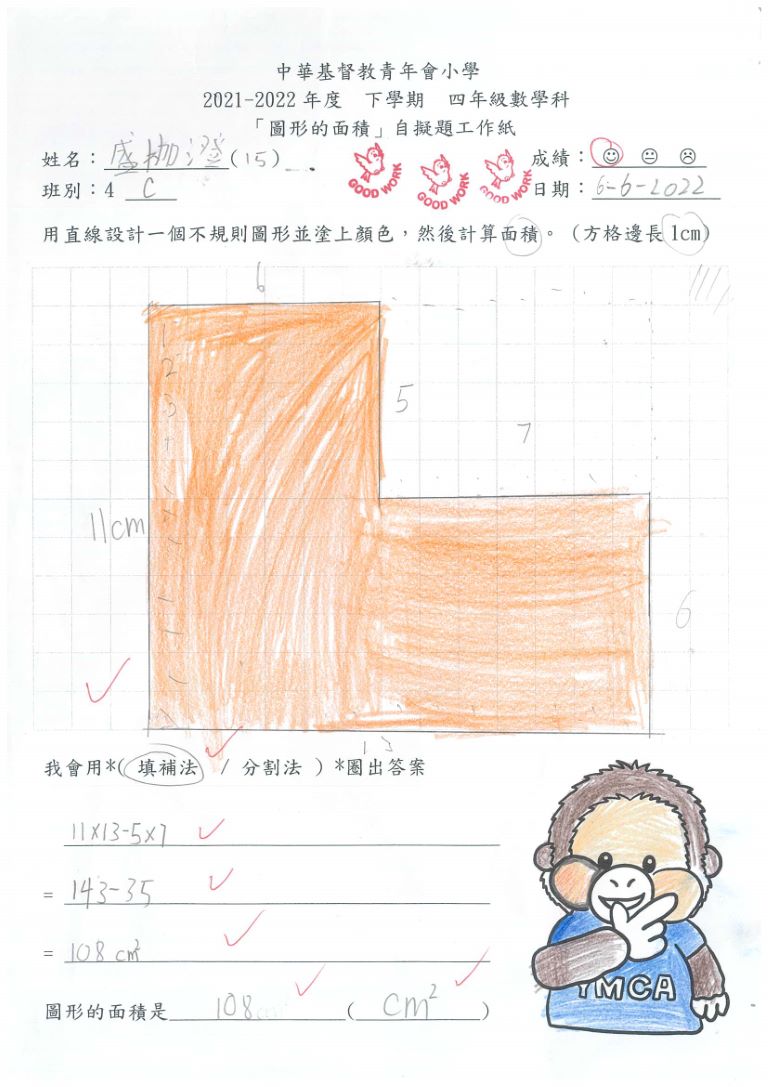 中華基督教青年會小學
2021-2022 年度 下學期 四年級數學科
「圖形的面積」自擬題工作紙
姓名：盛枷澄(15) GOOD WORK GOOD WORK GOOD WORK 成績：
班別：4 C 日期：6-6-2022
用直線設計一個不規則圖形並塗上顏色，然後計算面積。（方格邊長1cm）
6
1
2
3
5
7
11cm
6
13
我會用*( 填補法 / 分割法 ) *圈出答案
11×13-5×7
= 143-35
= 108 cm²
圖形的面積是 108 ( cm² )
YMCA